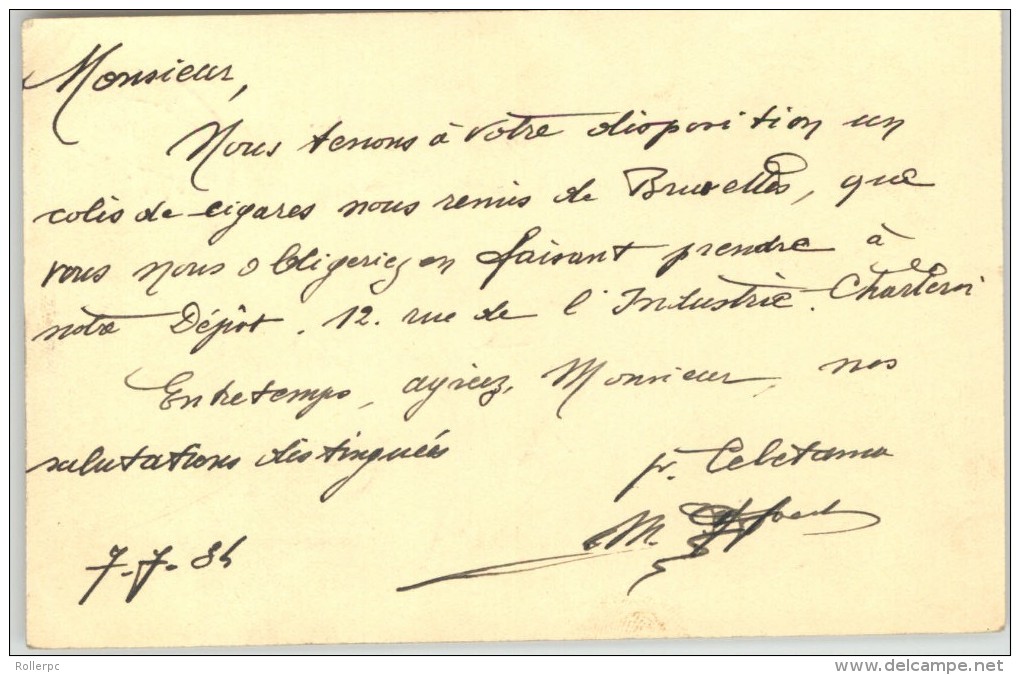 Monsieur,
Nous tenons à votre disposition un
colis de cigares nous remis de Bruxelles, que
vous nous obligeriez en faisant prendre à
notre Dépôt. 12. rue de l'Industrie. Charleroi
Entretemps, agréez, Monsieur, nos
salutations distinguées
pr. Celetama
M.
7-7-34
Rollerpc
www.delcampe.net